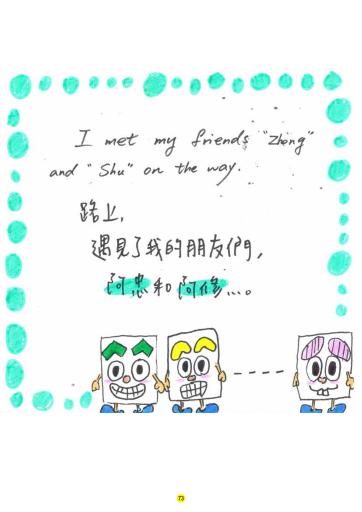 I met my friends "Zhong"
and "Shu" on the way.
路上,
遇見了我的朋友們,
阿忠和阿修...。
73